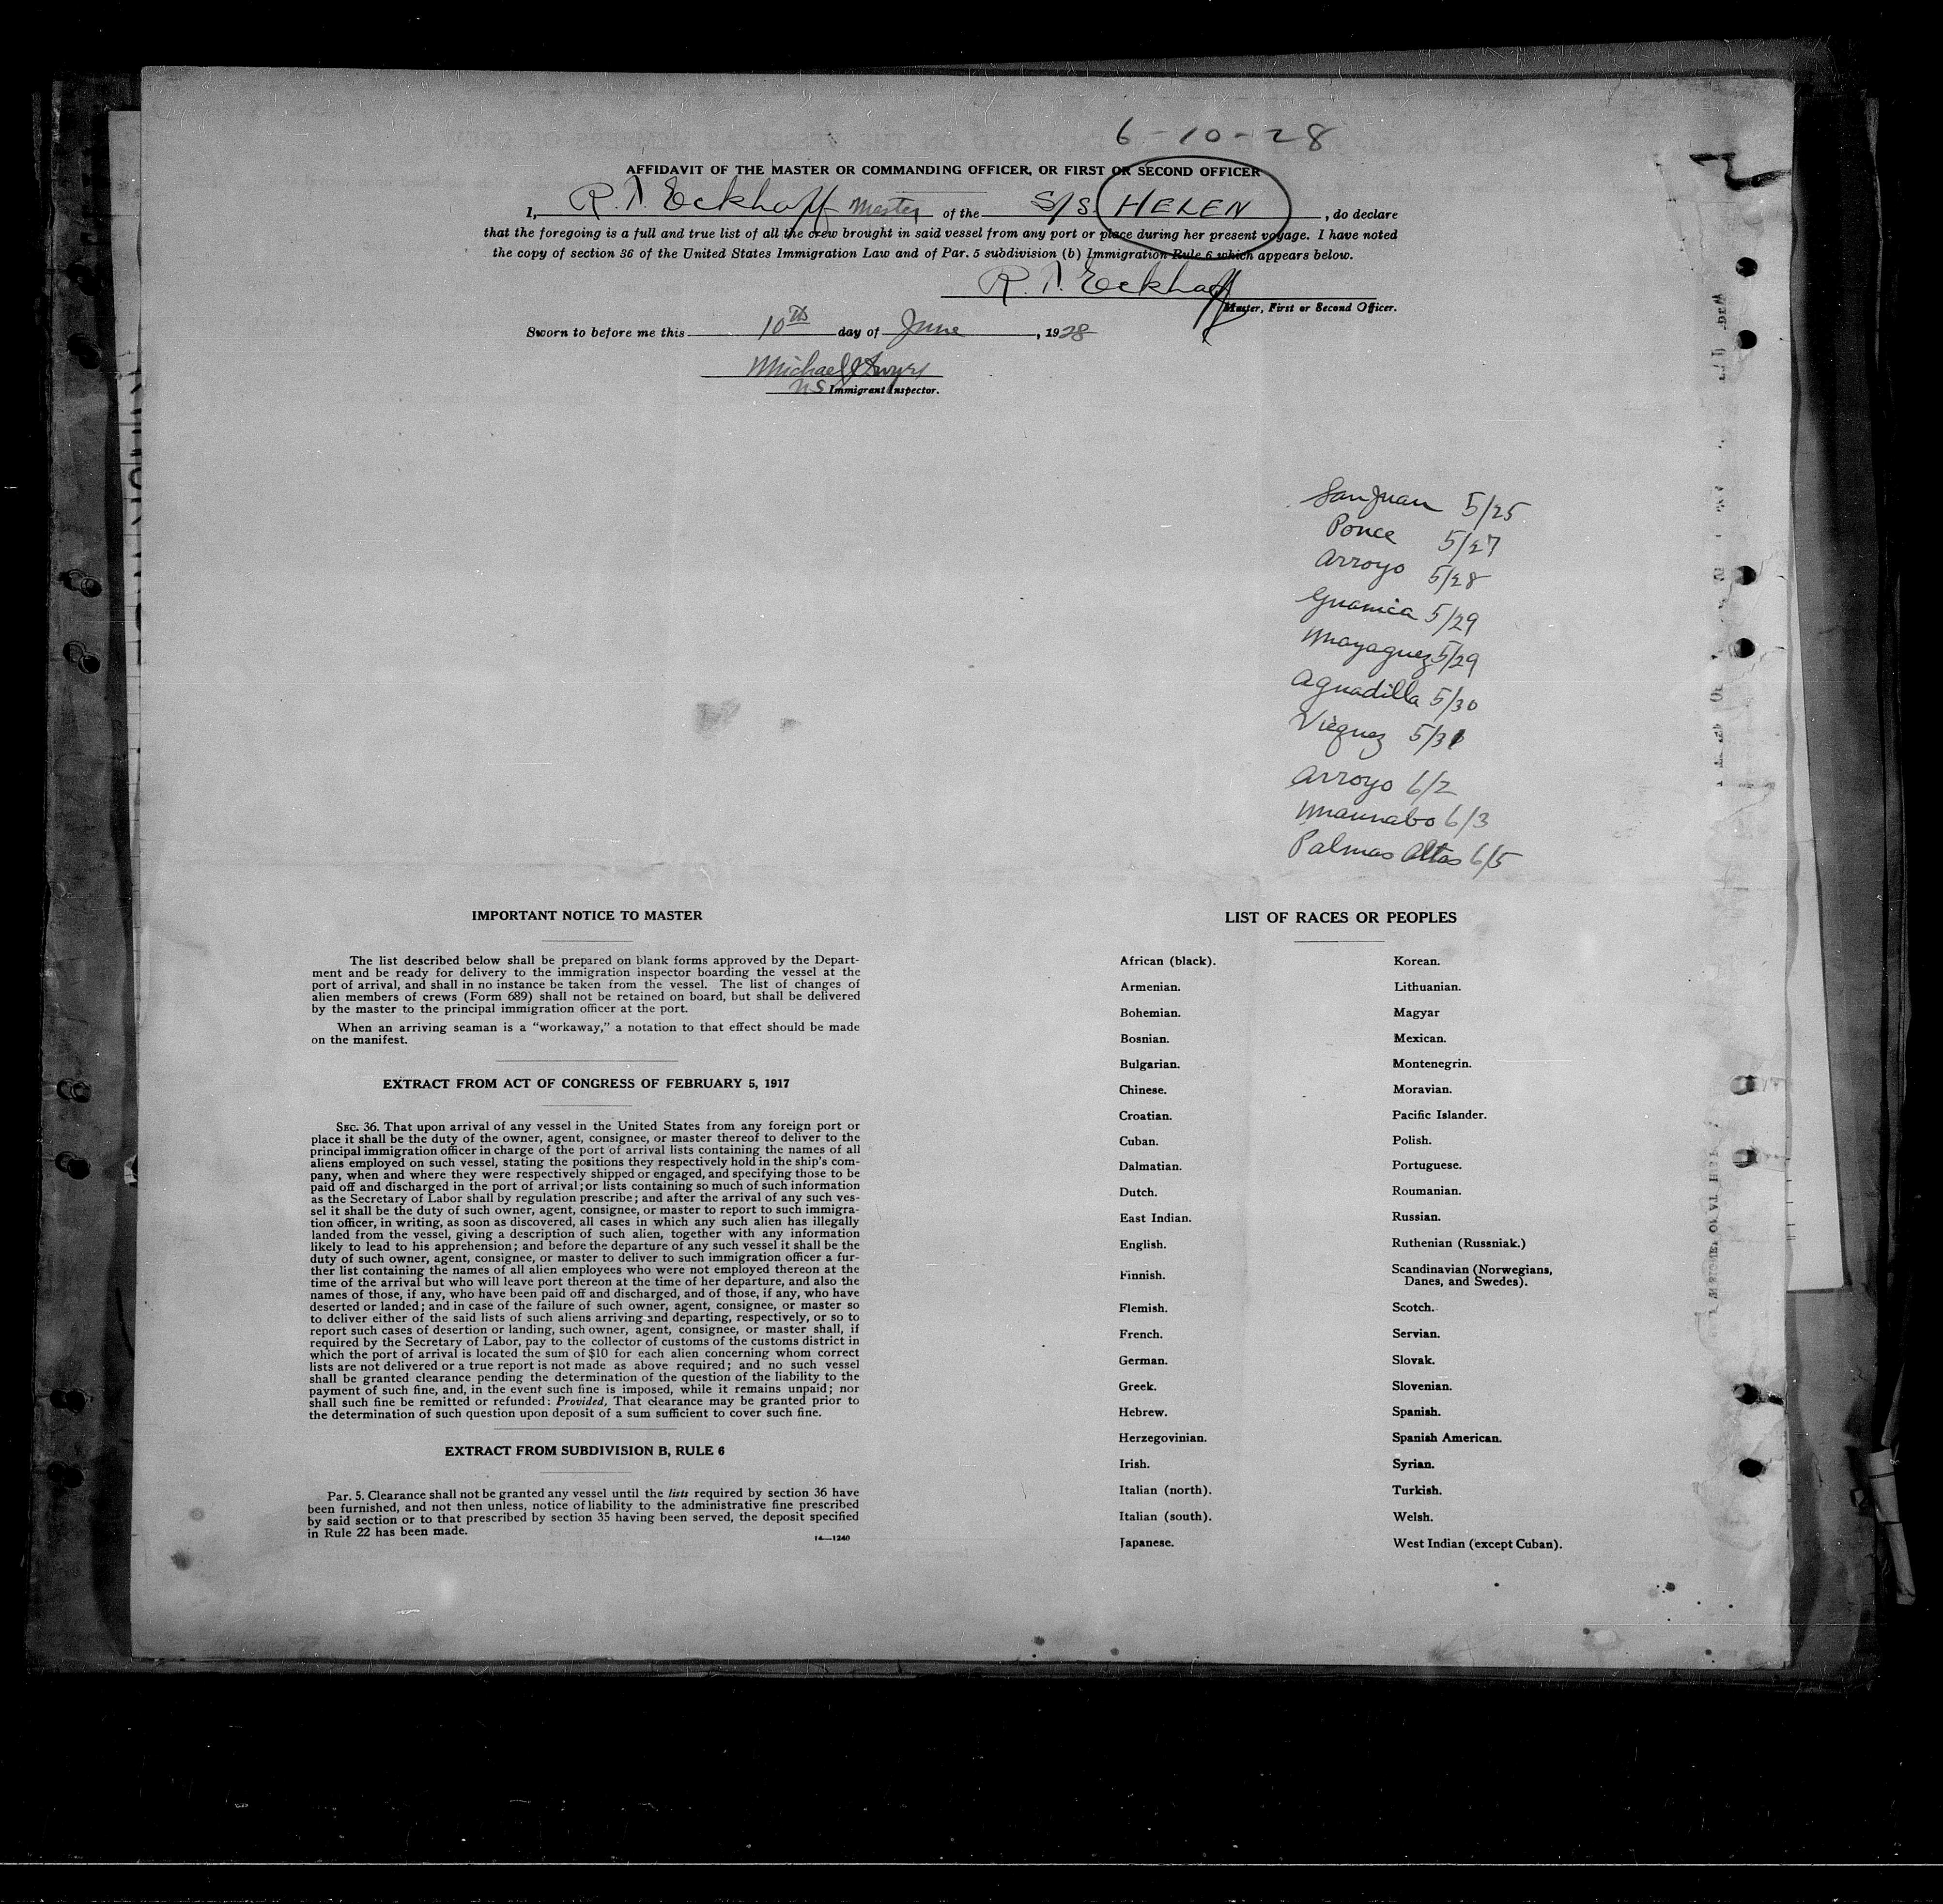 6-10-28
AFFIDAVIT OF THE MASTER OR COMMANDING OFFICER, OR FIRST OR SECOND OFFICER
I, R. Eckhoff Master of the S/S. HELEN, do declare
that the foregoing is a full and true list of all the crew brought in said vessel from any port or place during her present voyage. I have noted
the copy of section 36 of the United States Immigration Law and of Par. 5 subdivision (b) Immigration Rule 6 which appears below.
R. Eckhoff
Master, First or Second Officer.
Sworn to before me this 10th day of June, 1928
Michael
US Immigrant Inspector.
San Juan 5/25
Ponce 5/27
Arroyo 5/28
Guanica 5/29
Mayaguez 5/29
Aguadilla 5/30
Viequez 5/31
Arroyo 6/2
Maunabo 6/3
Palmas Altas 6/5
IMPORTANT NOTICE TO MASTER
The list described below shall be prepared on blank forms approved by the Depart-
ment and be ready for delivery to the immigration inspector boarding the vessel at the
port of arrival, and shall in no instance be taken from the vessel. The list of changes of
alien members of crews (Form 689) shall not be retained on board, but shall be delivered
by the master to the principal immigration officer at the port.
When an arriving seaman is a "workaway," a notation to that effect should be made
on the manifest.
EXTRACT FROM ACT OF CONGRESS OF FEBRUARY 5, 1917
SEC. 36. That upon arrival of any vessel in the United States from any foreign port or
place it shall be the duty of the owner, agent, consignee, or master thereof to deliver to the
principal immigration officer in charge of the port of arrival lists containing the names of all
aliens employed on such vessel, stating the positions they respectively hold in the ship's com-
pany, when and where they were respectively shipped or engaged, and specifying those to be
paid off and discharged in the port of arrival; or lists containing so much of such information
as the Secretary of Labor shall by regulation prescribe; and after the arrival of any such ves-
sel it shall be the duty of such owner, agent, consignee, or master to report to such immigra-
tion officer, in writing, as soon as discovered, all cases in which any such alien has illegally
landed from the vessel, giving a description of such alien, together with any information
likely to lead to his apprehension; and before the departure of any such vessel it shall be the
duty of such owner, agent, consignee, or master to deliver to such immigration officer a fur-
ther list containing the names of all alien employees who were not employed thereon at the
time of the arrival but who will leave port thereon at the time of her departure, and also the
names of those, if any, who have been paid off and discharged, and of those, if any, who have
deserted or landed; and in case of the failure of such owner, agent, consignee, or master so
to deliver either of the said lists of such aliens arriving and departing, respectively, or so to
report such cases of desertion or landing, such owner, agent, consignee, or master shall, if
required by the Secretary of Labor, pay to the collector of customs of the customs district in
which the port of arrival is located the sum of $10 for each alien concerning whom correct
lists are not delivered or a true report is not made as above required; and no such vessel
shall be granted clearance pending the determination of the question of the liability to the
payment of such fine, and, in the event such fine is imposed, while it remains unpaid; nor
shall such fine be remitted or refunded: Provided, That clearance may be granted prior to
the determination of such question upon deposit of a sum sufficient to cover such fine.
EXTRACT FROM SUBDIVISION B, RULE 6
Par. 5. Clearance shall not be granted any vessel until the lists required by section 36 have
been furnished, and not then unless, notice of liability to the administrative fine prescribed
by said section or to that prescribed by section 35 having been served, the deposit specified
in Rule 22 has been made.
14—1240
LIST OF RACES OR PEOPLES
African (black).
Armenian.
Bohemian.
Bosnian.
Bulgarian.
Chinese.
Croatian.
Cuban.
Dalmatian.
Dutch.
East Indian.
English.
Finnish.
Flemish.
French.
German.
Greek.
Hebrew.
Herzegovinian.
Irish.
Italian (north).
Italian (south).
Japanese.
Korean.
Lithuanian.
Magyar
Mexican.
Montenegrin.
Moravian.
Pacific Islander.
Polish.
Portuguese.
Roumanian.
Russian.
Ruthenian (Russniak.)
Scandinavian (Norwegians,
Danes, and Swedes).
Scotch.
Servian.
Slovak.
Slovenian.
Spanish.
Spanish American.
Syrian.
Turkish.
Welsh.
West Indian (except Cuban).